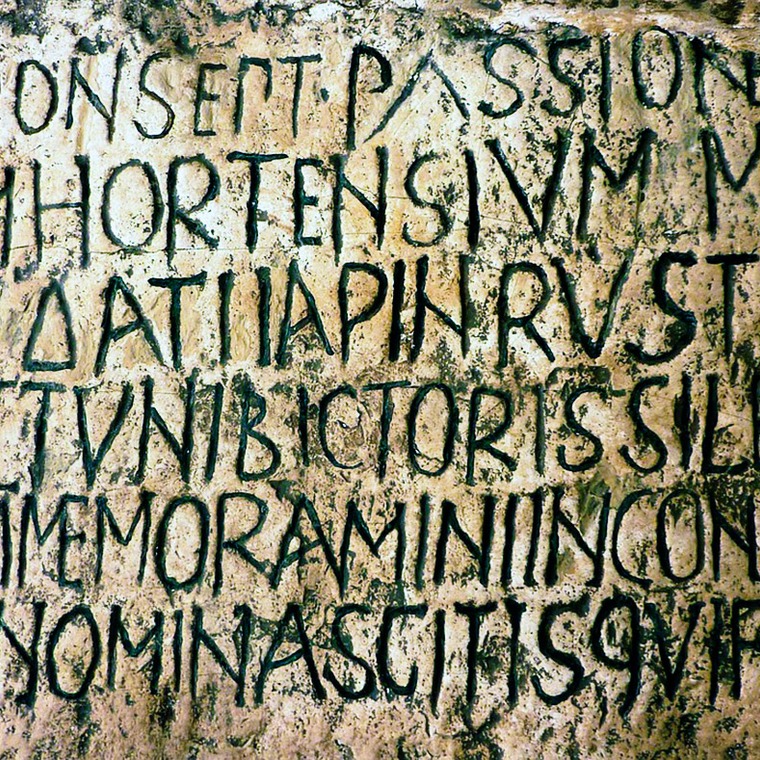 ONSEPT·PASSION
HORTENSIVM M
DATIIAPINRVST
TVNIBICTORISSIL
IMEMORAMINIINCON
NOMINASCITISQVIP